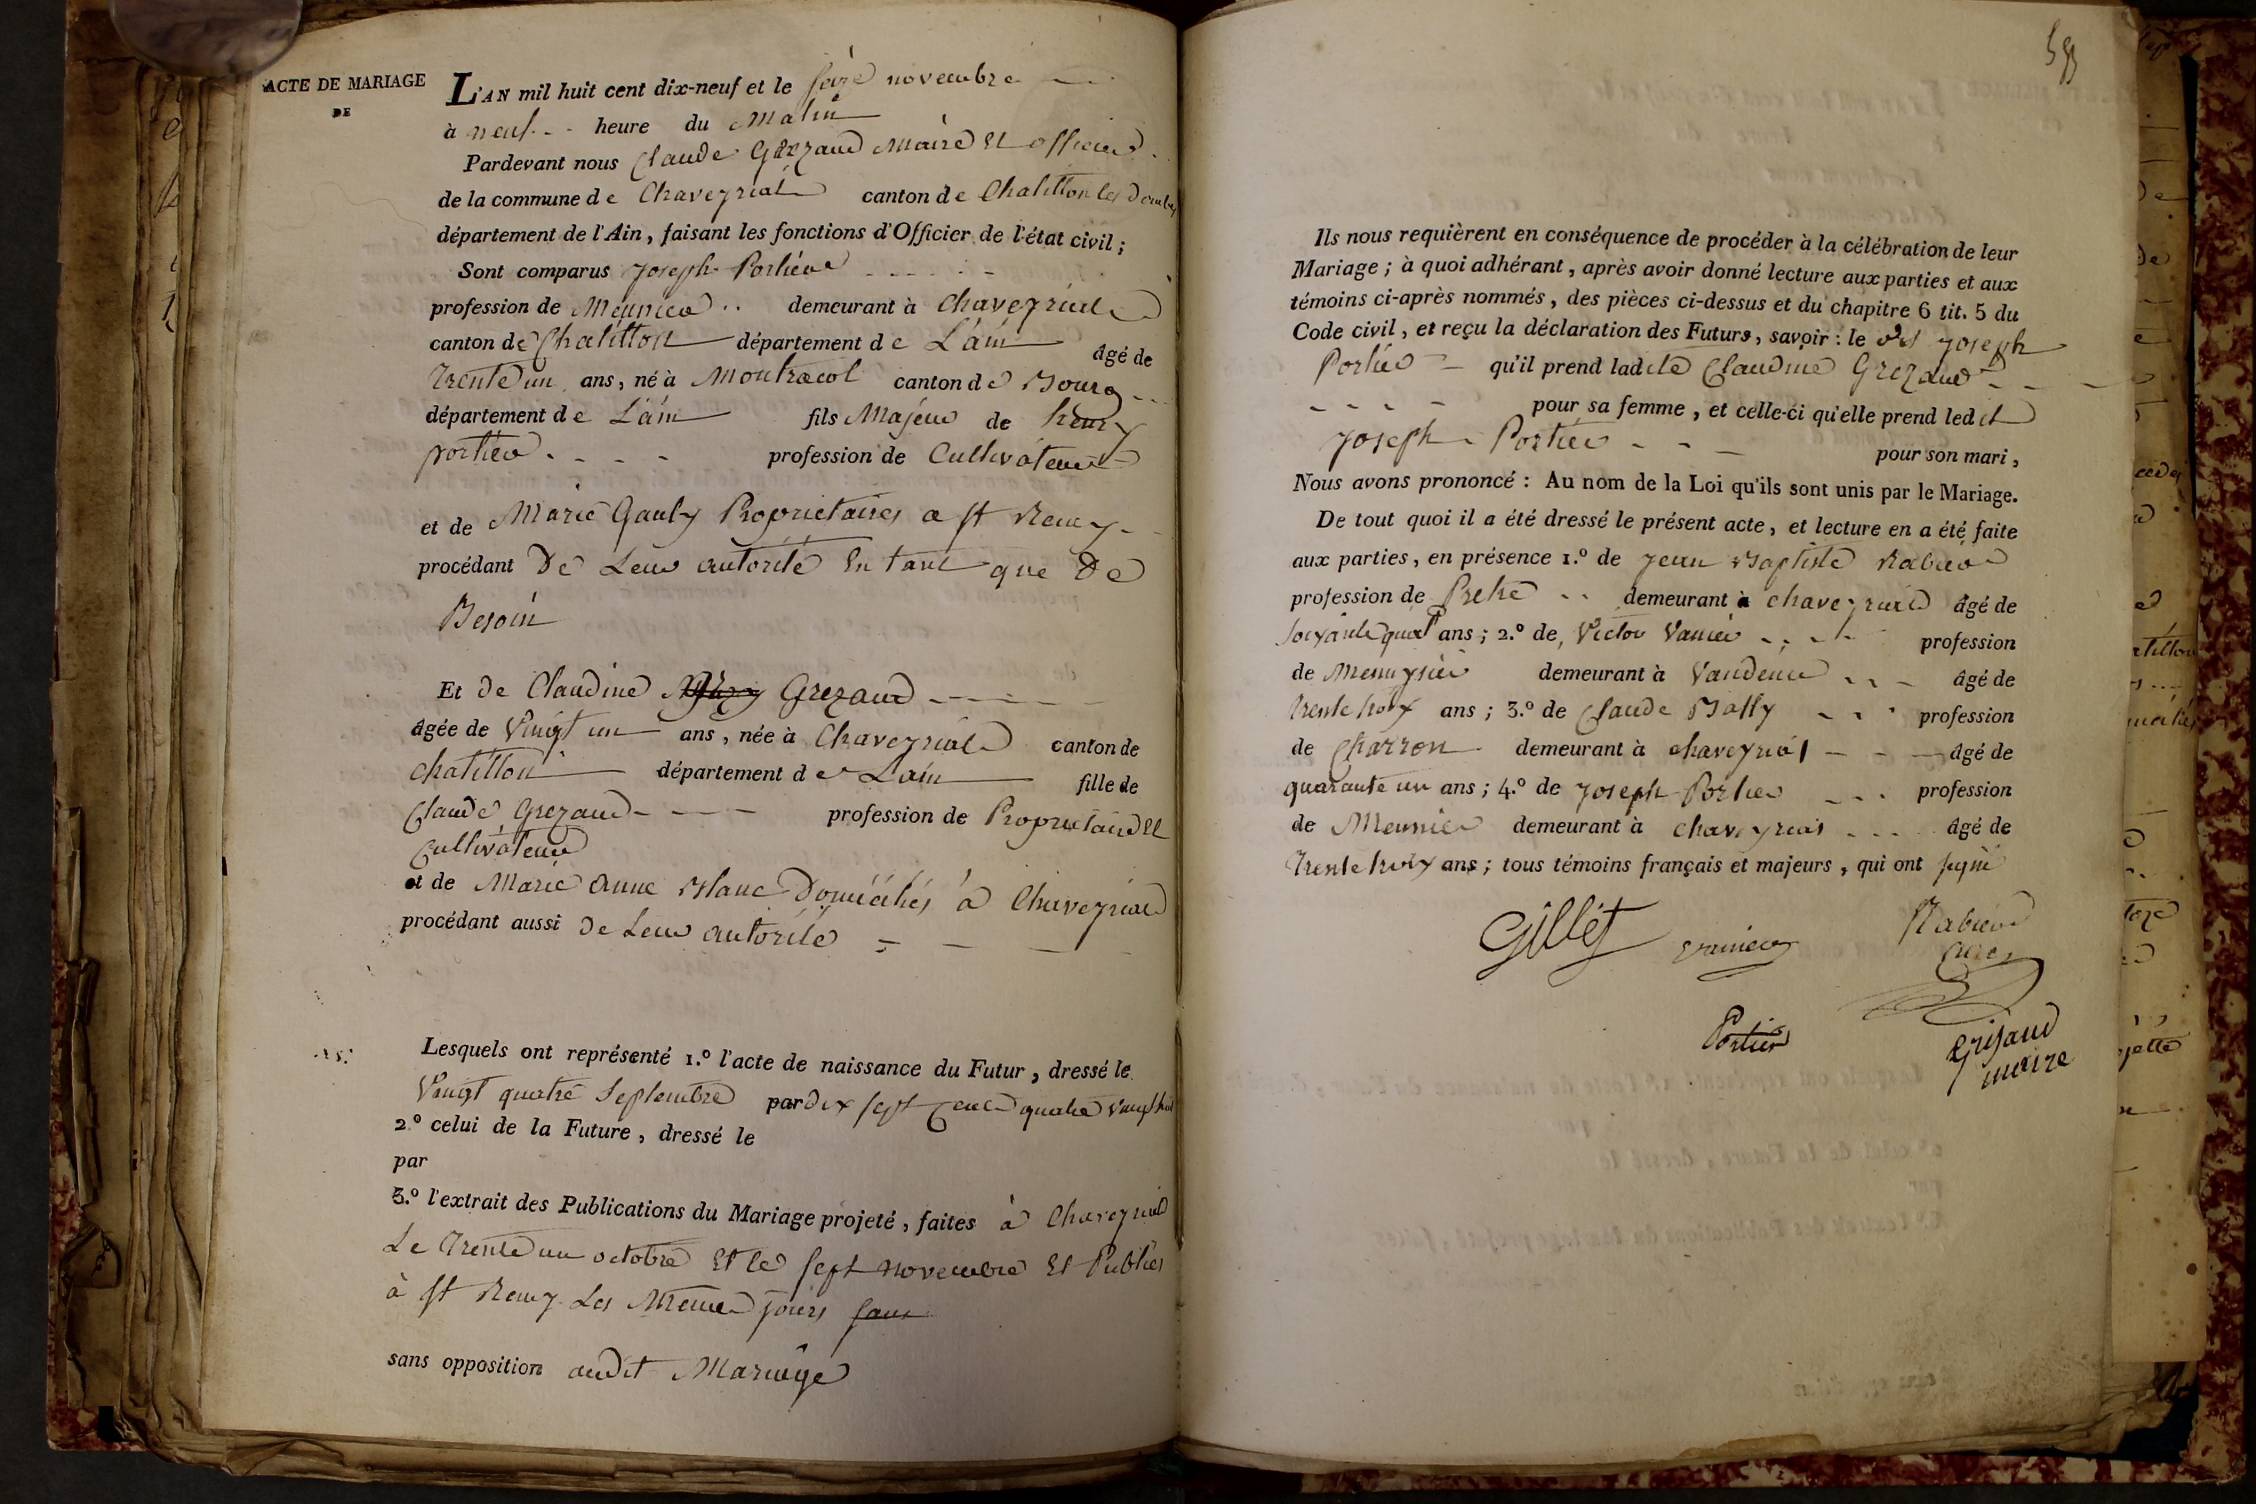 ACTE DE MARIAGE
DE
L'AN mil huit cent dix-neuf et le seize novembre
à neuf heure du Matin
Pardevant nous Claude Grezaud Maire Et officier
de la commune de Chaveyriat canton de Chatillon les Dombes
département de l'Ain, faisant les fonctions d'Officier de l'état civil ;
Sont comparus Joseph Portier
profession de Meunier demeurant à Chaveyriat
canton de Chatillon département de L'ain âgé de
Trente un ans, né à Montracol canton de Bourg
département de L'ain fils Majeur de henry
portier profession de Cultivateur
et de Marie Gauly Proprietaires a st Remy
procédant De Leur autorité En tant que De
Besoin
Et De Claudine Grezaud
âgée de Vingt un ans, née à Chaveyriat canton de
chatillon département de Lain fille de
Claude Grezaud profession de Proprietaire Et
Cultivateur
et de Marie anne Blanc Domiciliés à Chaveyriat
procédant aussi De Leur autorité
Lesquels ont représenté 1.º l'acte de naissance du Futur, dressé le
Vingt quatre Septembre par dix sept Cent quatre Vingt huit
2.º celui de la Future, dressé le
par
3.º l'extrait des Publications du Mariage projeté, faites à Chaveyriat
Le Trente un octobre Et le sept novembre Et Publiés
à st Remy Les Meme jours
sans opposition audit Mariage
Ils nous requièrent en conséquence de procéder à la célébration de leur
Mariage ; à quoi adhérant, après avoir donné lecture aux parties et aux
témoins ci-après nommés, des pièces ci-dessus et du chapitre 6 tit. 5 du
Code civil, et reçu la déclaration des Futurs, savoir : le dit Joseph
Portier qu'il prend ladite Claudine Grezaud
pour sa femme, et celle-ci qu'elle prend ledit
Joseph Portier pour son mari,
Nous avons prononcé : Au nom de la Loi qu'ils sont unis par le Mariage.
De tout quoi il a été dressé le présent acte, et lecture en a été faite
aux parties, en présence 1.º de Jean Baptiste Rabier
profession de Pretre demeurant à chaveyriat âgé de
soixante quat ans ; 2.º de Victor Vanier profession
de Menuysier demeurant à Vandeins âgé de
Trente troix ans ; 3.º de Claude Bally profession
de Charron demeurant à chaveyriat âgé de
quarante un ans ; 4.º de Joseph Portier profession
de Meunier demeurant à chaveyriat âgé de
Trente troix ans ; tous témoins français et majeurs, qui ont signé
Gillet vanier Rabier
Curé
Portier
Grisaud
maire